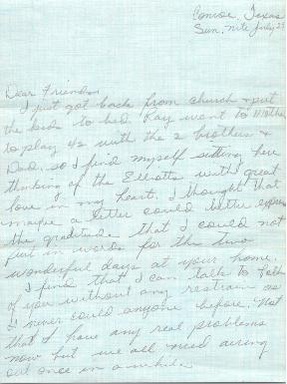 Conroe, Texas
Sun. nite July
Dear Friends,
I just got back from church & put
the kids to bed. Ray went to Mothers
to play 42 with the 2 brothers &
Dad, so I find myself sitting here
thinking of the Elliotts with great
love in my heart. I thought that
maybe a letter could better express
the gratitude that I could not
put in words for the two
wonderful days at your home.
I find that I can talk to both
of you without any restraint as
I never could anyone before. Not
that I have any real problems
now but we all need airing
out once in a while.